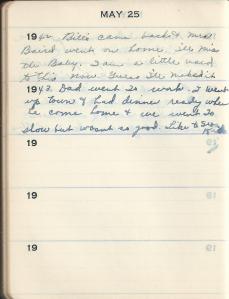 MAY 25
1942 Bill's came back & Mrs.
Baird went on home. I'll miss
the Baby. I am a little used
to this now. Guess I'll make it
1943. Dad went to work. I went
up town & had dinner ready when
he come home & we went to
show but wasnt so good. Like to
19
19
19